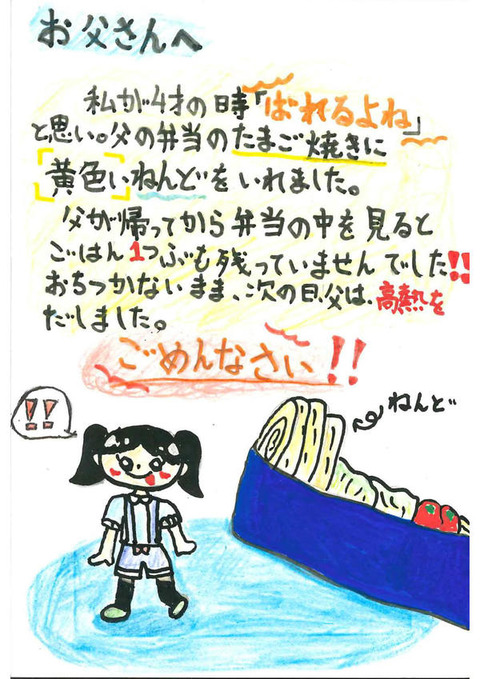 お父さんへ
私が4才の時「ばれるよね」
と思い。父の弁当のたまご焼きに
黄色いねんどをいれました。
父が帰ってから弁当の中を見ると
ごはん1つぶも残っていませんでした!!
おちつかないまま、次の日、父は、高熱を
だしました。
ごめんなさい!!
ねんど
!!